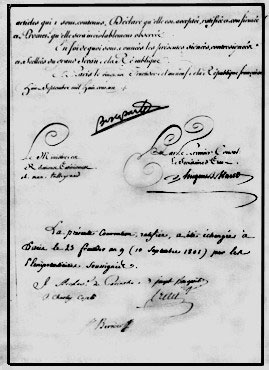 articles qui y sont contenus, Déclare qu'elle est acceptée, ratifiée et confirmée
et Promet qu'elle sera inviolablement observée.
En foi de quoi sont données les présentes signées, contresignées
et scellées du grand Sceau de la République
à Paris le République française
Bonaparte
Le Ministre des
Relations Extérieures
Ch. Mau. Talleyrand
Par le Premier Consul
Le Secrétaire d'État
Hugues Maret
La présente Convention ratifiée, a été échangée à
Paris le 23 fructidor an 9 (10 Septembre 1801) par les
Plénipotentiaires soussignés.
joseph Bonaparte
J. Charles Caselli
Cretet
Bernier